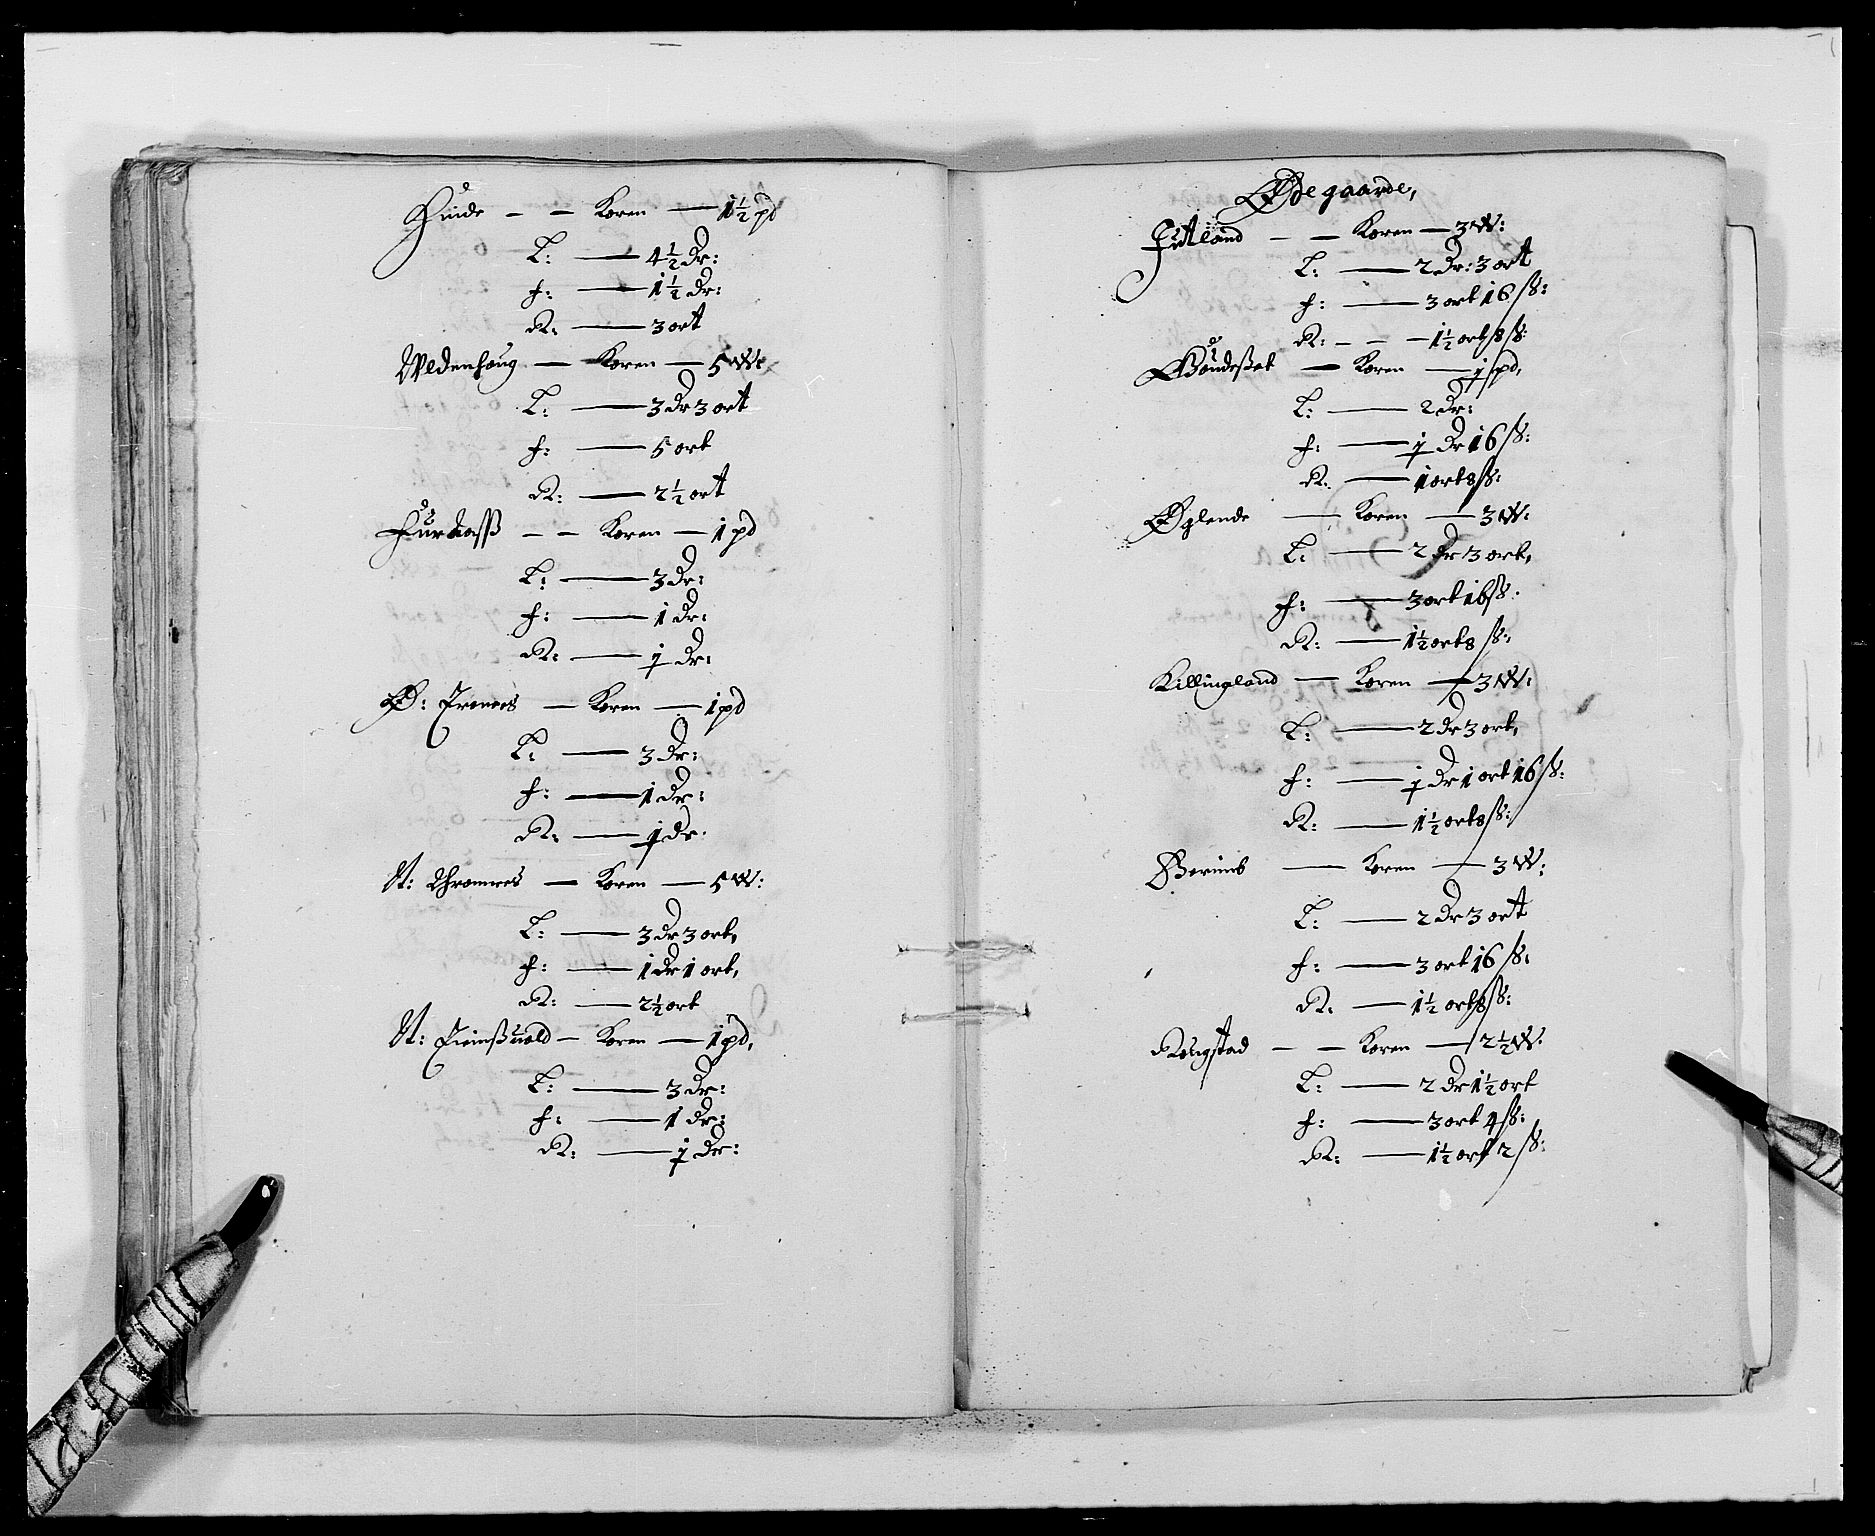 Hinde - - Koren — 1½ pd
L: — 4½ Dr:
f: — 1½ Dr:
R: — 3 ort
Oldenhoug — Koren — 5 W:
L: — 3 Dr 3 ort
f: — 5 ort
R: — 2½ ort
- - Koren — 1 pd
L: — 3 Dr:
f: — 1 Dr:
R: — ½ Dr:
Ø: — Koren — 1 pd
L: — 3 Dr:
f: — 1 Dr:
R: — ½ Dr:
N: — Koren — 5 W:
L: — 3 Dr 3 ort,
f: — 1 Dr 1 ort,
R: — 2½ ort
N: — Koren — 1 pd,
L: — 3 Dr:
f: — 1 Dr:
R: — ½ Dr:
Øde gaarde,
Jutland - — Koren — 3 W:
L: — 2 Dr: 3 ort
f: — 3 ort 16 ß:
R: - - — 1½ ort 8 ß:
— Koren — ½ pd,
L: — 2 Dr:
f: — ½ Dr 16 ß:
R: — 1 ort 8 ß:
Øglende — Koren — 3 W:
L: — 2 Dr 3 ort,
f: — 3 ort 16 ß:
R: — 1½ ort 8 ß:
Killingland — Koren — 3 W:
L: — 2 Dr 3 ort,
f: — ½ Dr 1 ort 16 ß:
R: — 1½ ort 8 ß:
— Koren — 3 W:
L: — 2 Dr 3 ort
f: — 3 ort 16 ß:
R: — 1½ ort 8 ß:
Rougstad - — Koren — 2½ W:
L: — 2 Dr 1½ ort
f: — 3 ort 4 ß:
R: — 1½ ort 2 ß: